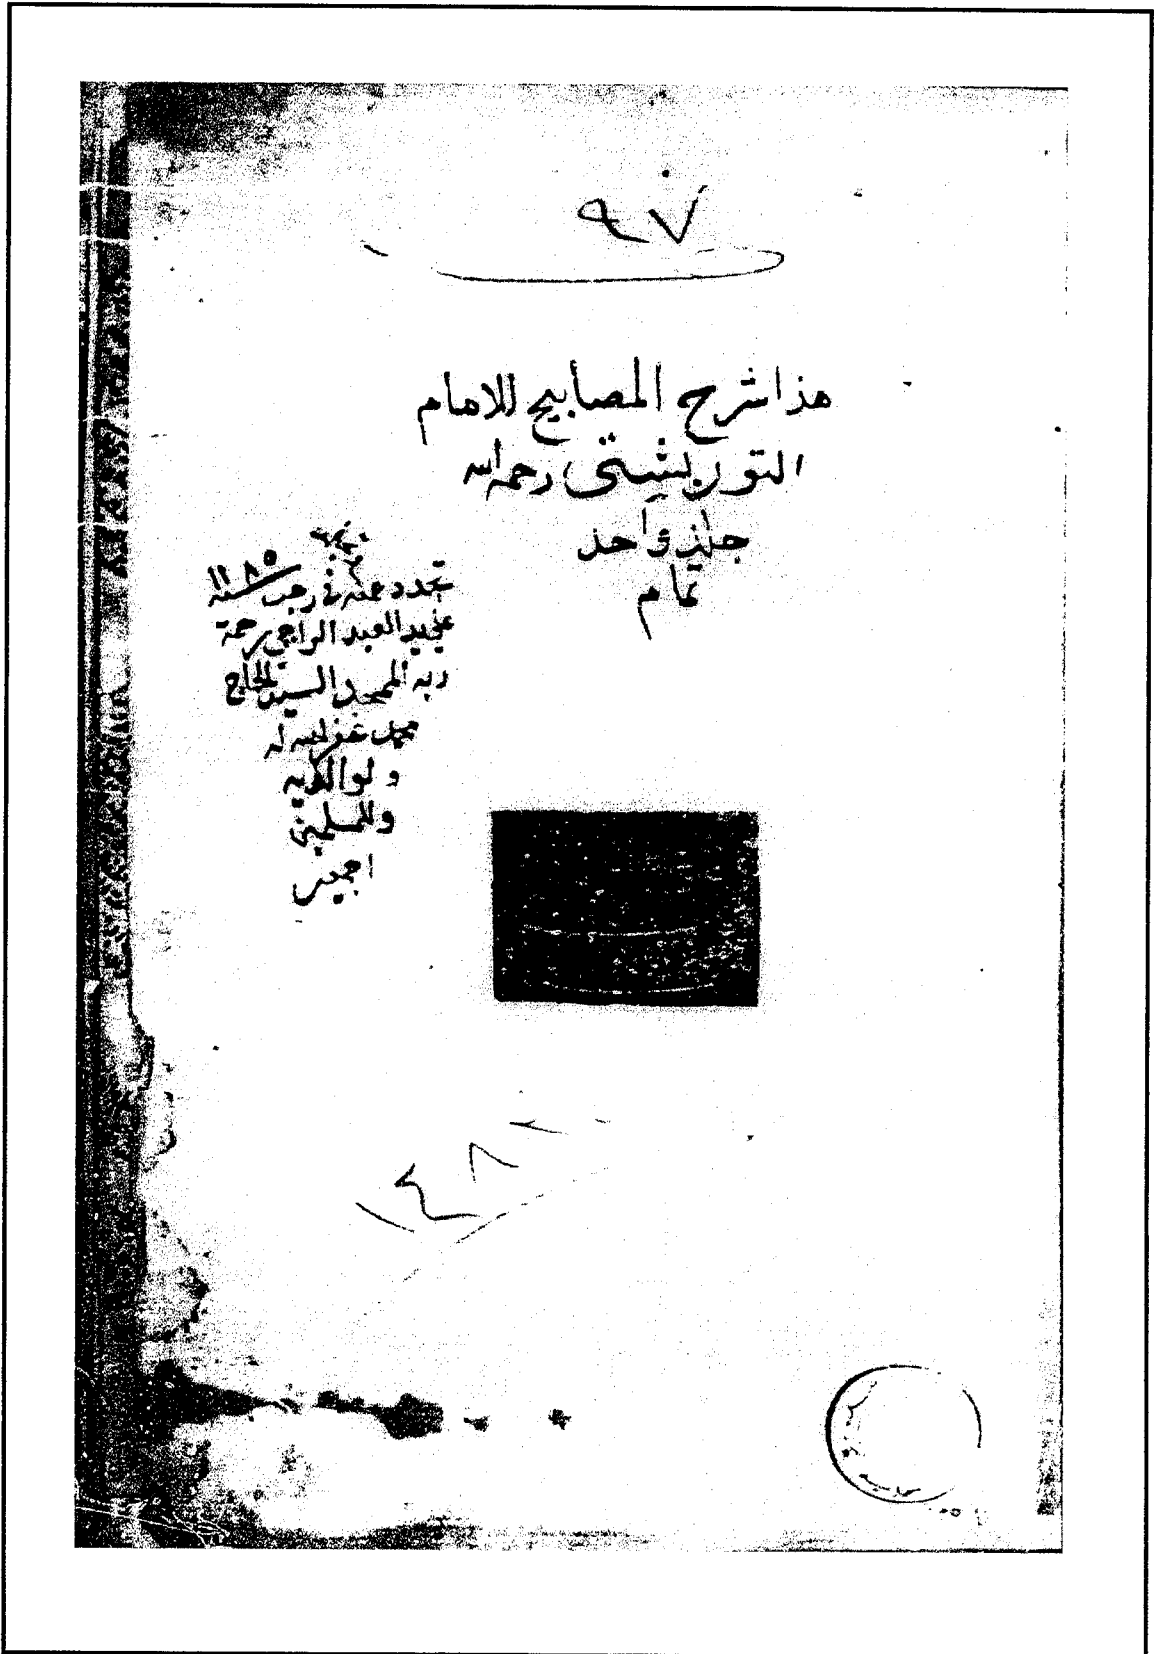 ٩٧
هذا شرح المصابيح للامام
التوربشتي رحمه الله
جلد واحد
تمام
في رجب سنة ١١٨٥
العبد الراجي رحمة
ربه السيد الحاج
محمد غفر الله له
ولوالديه
وللمسلمين
اجمعين